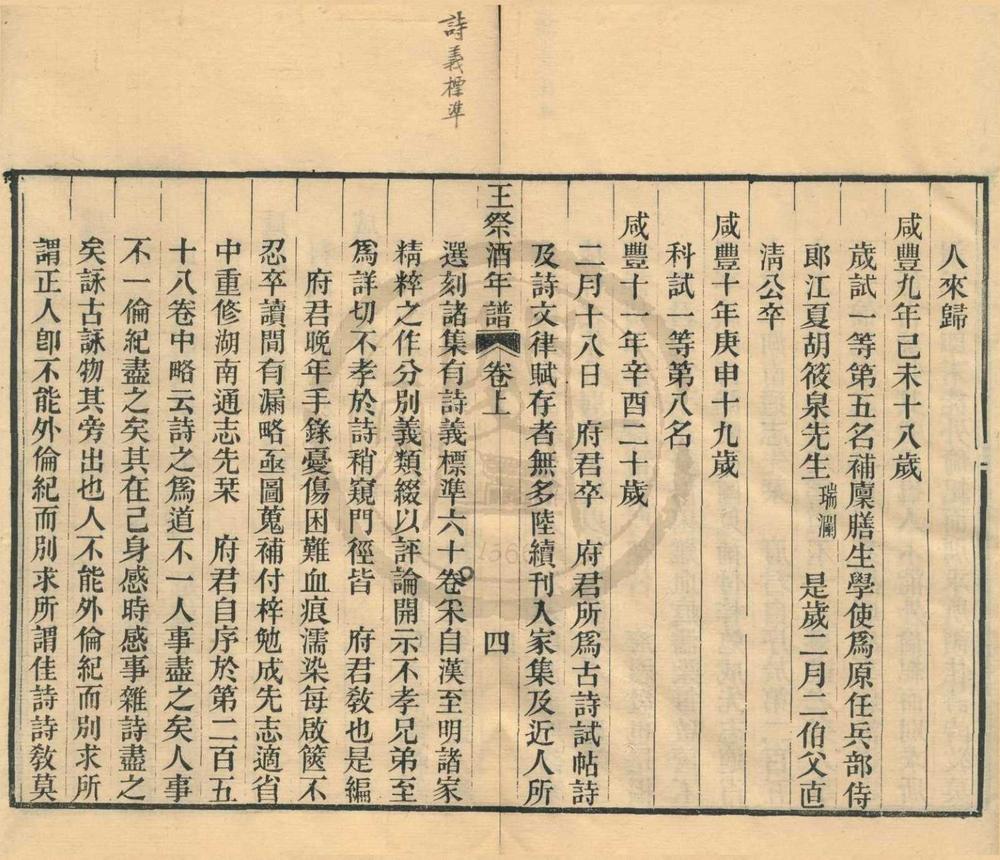 詩義標準
人來歸
咸豐九年己未十八歲
歲試一等第五名補廩膳生學使爲原任兵部侍
郎江夏胡筱泉先生瑞瀾 是歲二月二伯父直
淸公卒
咸豐十年庚申十九歲
科試一等第八名
咸豐十一年辛酉二十歲
二月十八日 府君卒 府君所爲古詩試帖詩
及詩文律賦存者無多陸續刊入家集及近人所
王祭酒年譜 卷上 四
選刻諸集有詩義標準六十卷采自漢至明諸家
精粹之作分別義類綴以評論開示不孝兄弟至
爲詳切不孝於詩稍窺門徑皆 府君敎也是編
府君晚年手錄憂傷困難血痕濡染每啟篋不
忍卒讀間有漏略亟圖蒐補付梓勉成先志適省
中重修湖南通志先栞 府君自序於第二百五
十八卷中略云詩之爲道不一人事盡之矣人事
不一倫紀盡之矣其在己身感時感事雜詩盡之
矣詠古詠物其旁出也人不能外倫紀而別求所
謂正人卽不能外倫紀而別求所謂佳詩詩敎莫